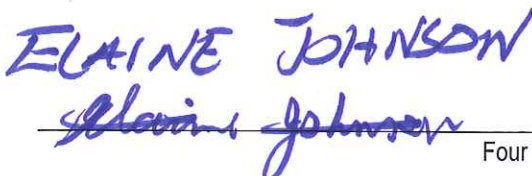 ELAINE JOHNSON
Elaine Johnson
Four